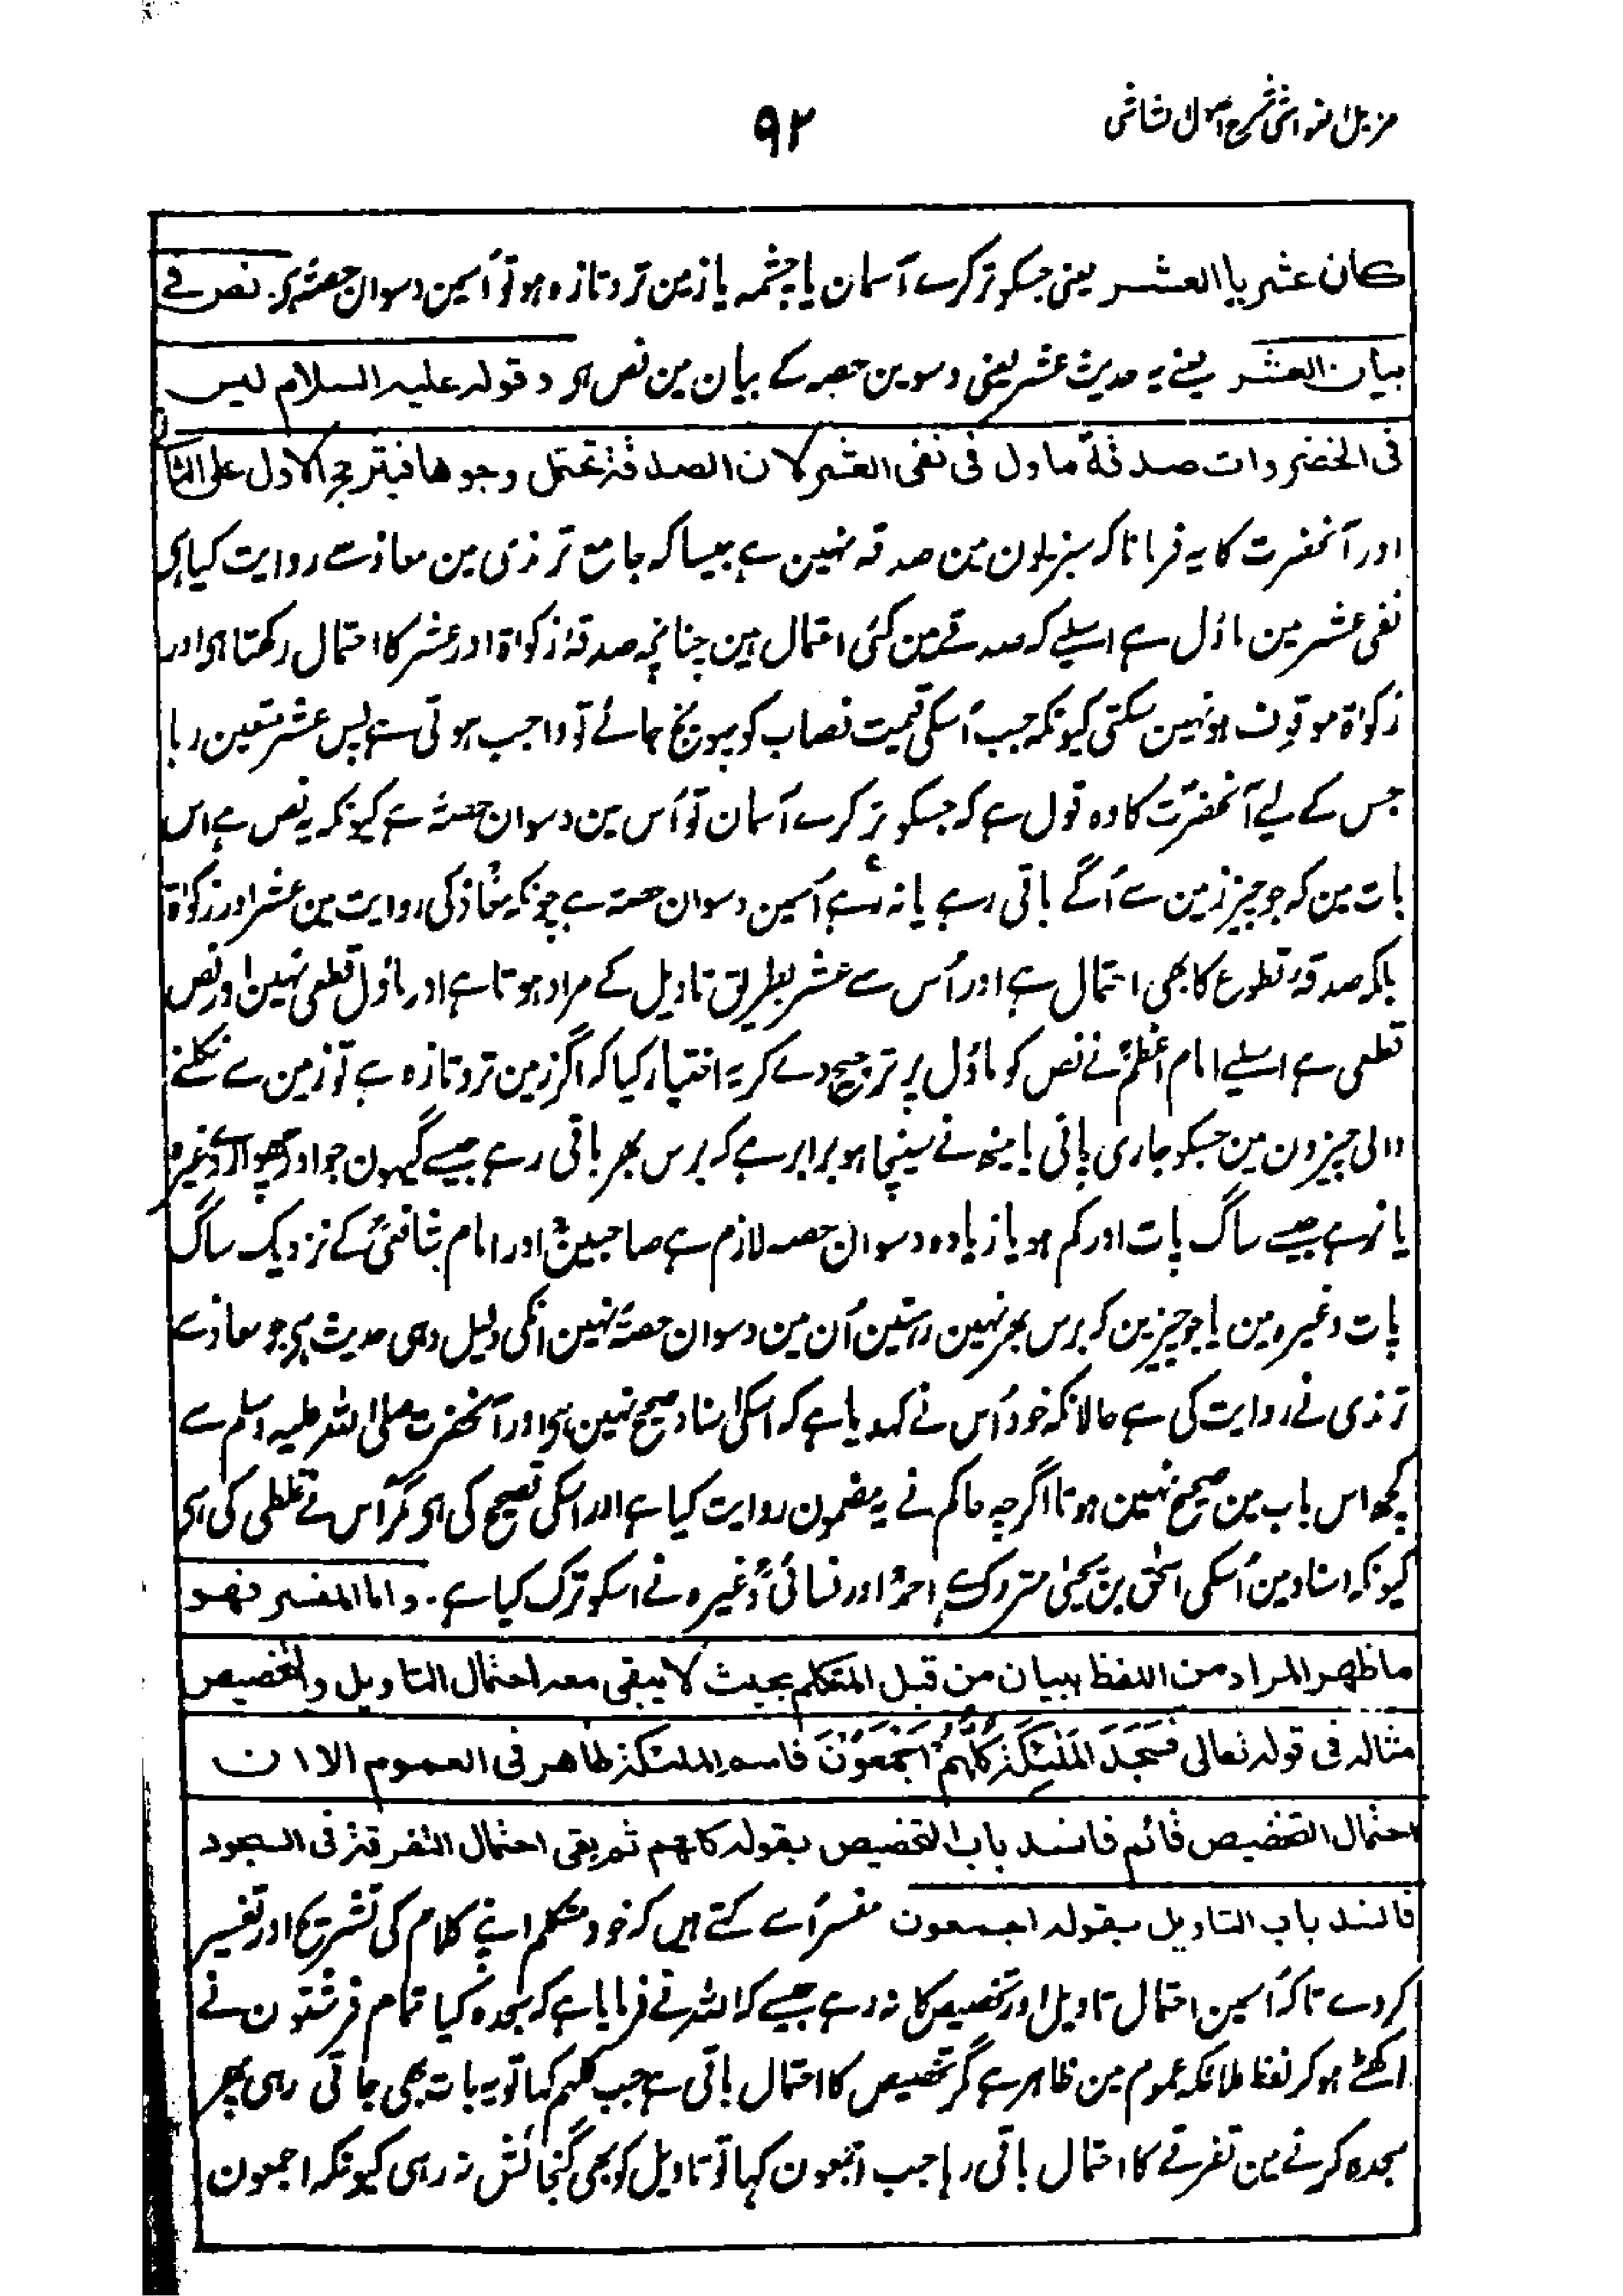 مزیل الغواشی شرح اصول الشاشی
۹۲
کان عشریا العشر یعنی جسکو تر کرے آسمان یا چشمہ یا زمین تر و تازہ ہو تو اُسمین دسوان حصہ ہی۔ نص فی
بیان العشر یعنے یہ حدیث عشر یعنی دسوین حصہ کے بیان مین نص ہی وقولہ علیہ السلام لیس
فی الخضروات صدقۃٌ ماول فی نفی العشر لان الصدقۃ تحتمل وجوھا فیترجح الاول علی الثانی
اور آنحضرت کا یہ فرمانا کہ سبزیون مین صدقہ نہین ہے جیسا کہ جامع ترمذی مین معاذ سے روایت کیا ہی
نفی عشر مین ماؤل ہے اسلیے کہ صدقے مین کئی احتمال ہین چنانچہ صدقہ زکواۃ اور عشر کا احتمال رکھتا ہی اور
زکوٰۃ موقوف ہو نہین سکتی کیونکہ جب اُسکی قیمت نصاب کو پہونچ جائے تو واجب ہوتی ہے پس عشر متعین رہا
جس کے لیے آنحضرتؐ کا وہ قول ہے کہ جسکو تر کرے آسمان تو اُس مین دسوان حصہ ہے کیونکہ یہ نص ہے اس
بات مین کہ جو چیز زمین سے اُگے باقی رہے یا نہ رہے اُسمین دسوان حصہ ہے چونکہ معاذ کی روایت مین عشر اور زکوٰۃ
بلکہ صدقہ تطوع کا بھی احتمال ہے اور اُس سے عشر بطریق تاویل کے مراد ہوتا ہے اور ماؤل قطعی نہین اور نص
قطعی ہے اسلیے امام اعظمؒ نے نص کو ماؤل پر ترجیح دے کر یہ اختیار کیا کہ اگر زمین تر و تازہ ہے تو زمین سے نکلنے
والی چیزون مین جسکو جاری پانی یا مینھ نے سینچا ہو برابر ہے کہ برس بھر باقی رہے جیسے گیہون جو اور چھوارے وغیرہ
یا نہ رہے جیسے ساگ پات اور کم ہو یا زیادہ دسوان حصہ لازم ہے صاحبینؒ اور امام شافعیؒ کے نزدیک ساگ
پات وغیرہ مین یا جو چیزین کہ برس بھر نہین رہتین اُن مین دسوان حصہ نہین انکی دلیل وہی حدیث ہی جو معاذ سے
ترمذی نے روایت کی ہے حالانکہ خود اُس نے کہدیا ہے کہ اسکی اسناد صحیح نہین ہی اور آنحضرت صلی اللہ علیہ وسلم سے
کچھ اس باب مین صحیح نہین ہوتا اگرچہ حاکم نے یہ مضمون روایت کیا ہے اور اسکی تصحیح کی ہی مگر اُس نے غلطی کی ہی
کیونکہ اسناد مین اُسکی اسحٰق بن یحییٰ متروک ہے احمدؒ اور نسائیؒ وغیرہ نے اسکو ترک کیا ہے۔ واما المفسر فھو
ما ظھر المراد من اللفظ ببیان من قبل المتکلم بحیث لا یبقی معہ احتمال التاویل والتخصیص
مثالہ فی قولہ تعالی فَسَجَدَ الْمَلٰئِکَۃُ کُلُّہُمْ اَجْمَعُوْنَ فاسم الملئکۃ ظاھر فی العموم الا ان
احتمال التخصیص قائم فانسد باب التخصیص بقولہ کلھم ثم بقی احتمال التفرقۃ فی السجود
فانسد باب التاویل بقولہ اجمعون مفسر اُسے کہتے ہیں کہ خود متکلم اپنے کلام کی تشریح اور تفسیر
کردے تاکہ اُسمین احتمال تاویل اور تخصیص کا نہ رہے جیسے کہ اللہ نے فرمایا ہے کہ سجدہ کیا تمام فرشتون نے
اکھٹے ہوکر لفظ ملائکہ عموم مین ظاہر ہے مگر تخصیص کا احتمال باقی ہے جب کلہم کہا تو یہ بات بھی جاتی رہی پھر
سجدہ کرنے مین تفرقے کا احتمال باقی رہا جب اجمعون کہا تو تاویل کو بھی گنجائش نہ رہی کیونکہ اجمعون